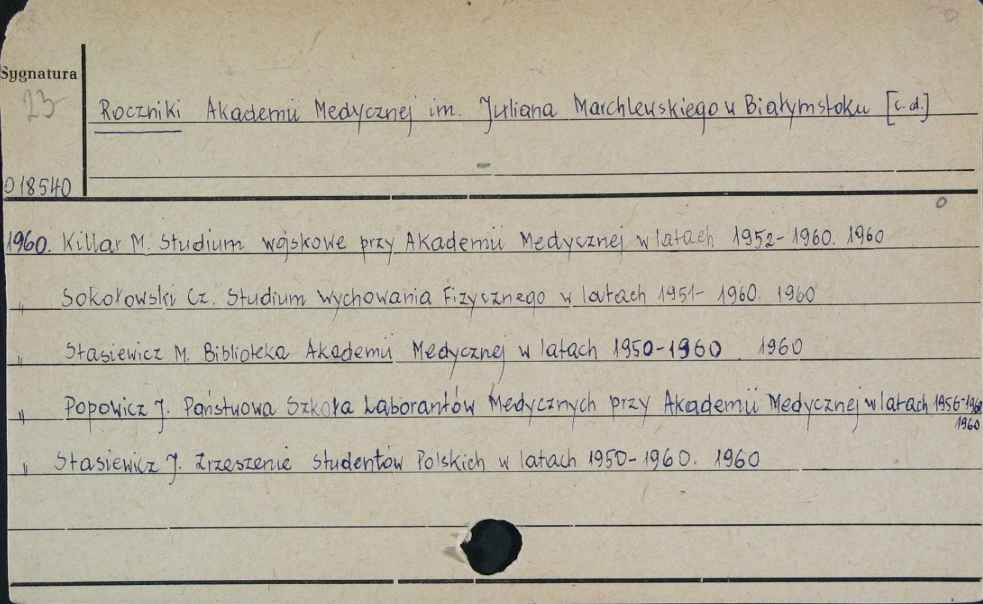 Sygnatura
23
Roczniki Akademii Medycznej im. Juliana Marchlewskiego w Białymstoku [c.d.]
D18540
1960. Killar M. Studium wojskowe przy Akademii Medycznej w latach 1952-1960. 1960
" Sokołowski Cz. Studium Wychowania Fizycznego w latach 1951-1960. 1960
" Stasiewicz M. Biblioteka Akademii Medycznej w latach 1950-1960 1960
" Popowicz J. Państwowa Szkoła Laborantów Medycznych przy Akademii Medycznej w latach 1956-1960
1960
" Stasiewicz J. Zrzeszenie Studentów Polskich w latach 1950-1960. 1960